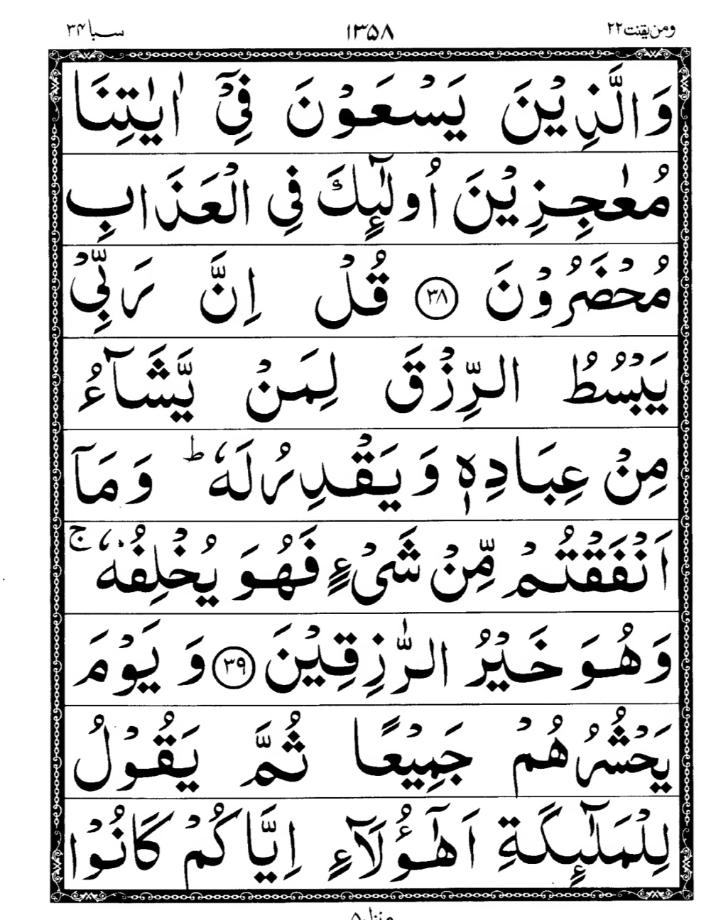 ومن یقنت ۲۲ ۱۳۵۸ سبا ۳۴
وَالَّذِيْنَ يَسْعَوْنَ فِيْۤ اٰيٰتِنَا
مُعٰجِزِيْنَ اُولٰٓئِكَ فِي الْعَذَابِ
مُحْضَرُوْنَ ﴿۳۸﴾ قُلْ اِنَّ رَبِّيْ
يَبْسُطُ الرِّزْقَ لِمَنْ يَّشَآءُ
مِنْ عِبَادِهٖ وَيَقْدِرُ لَهٗ ؕ وَمَاۤ
اَنْفَقْتُمْ مِّنْ شَيْءٍ فَهُوَ يُخْلِفُهٗ ۚ
وَهُوَ خَيْرُ الرّٰزِقِيْنَ ﴿۳۹﴾ وَيَوْمَ
يَحْشُرُهُمْ جَمِيْعًا ثُمَّ يَقُوْلُ
لِلْمَلٰٓئِكَةِ اَهٰٓؤُلَآءِ اِيَّاكُمْ كَانُوْا
منزل ۵